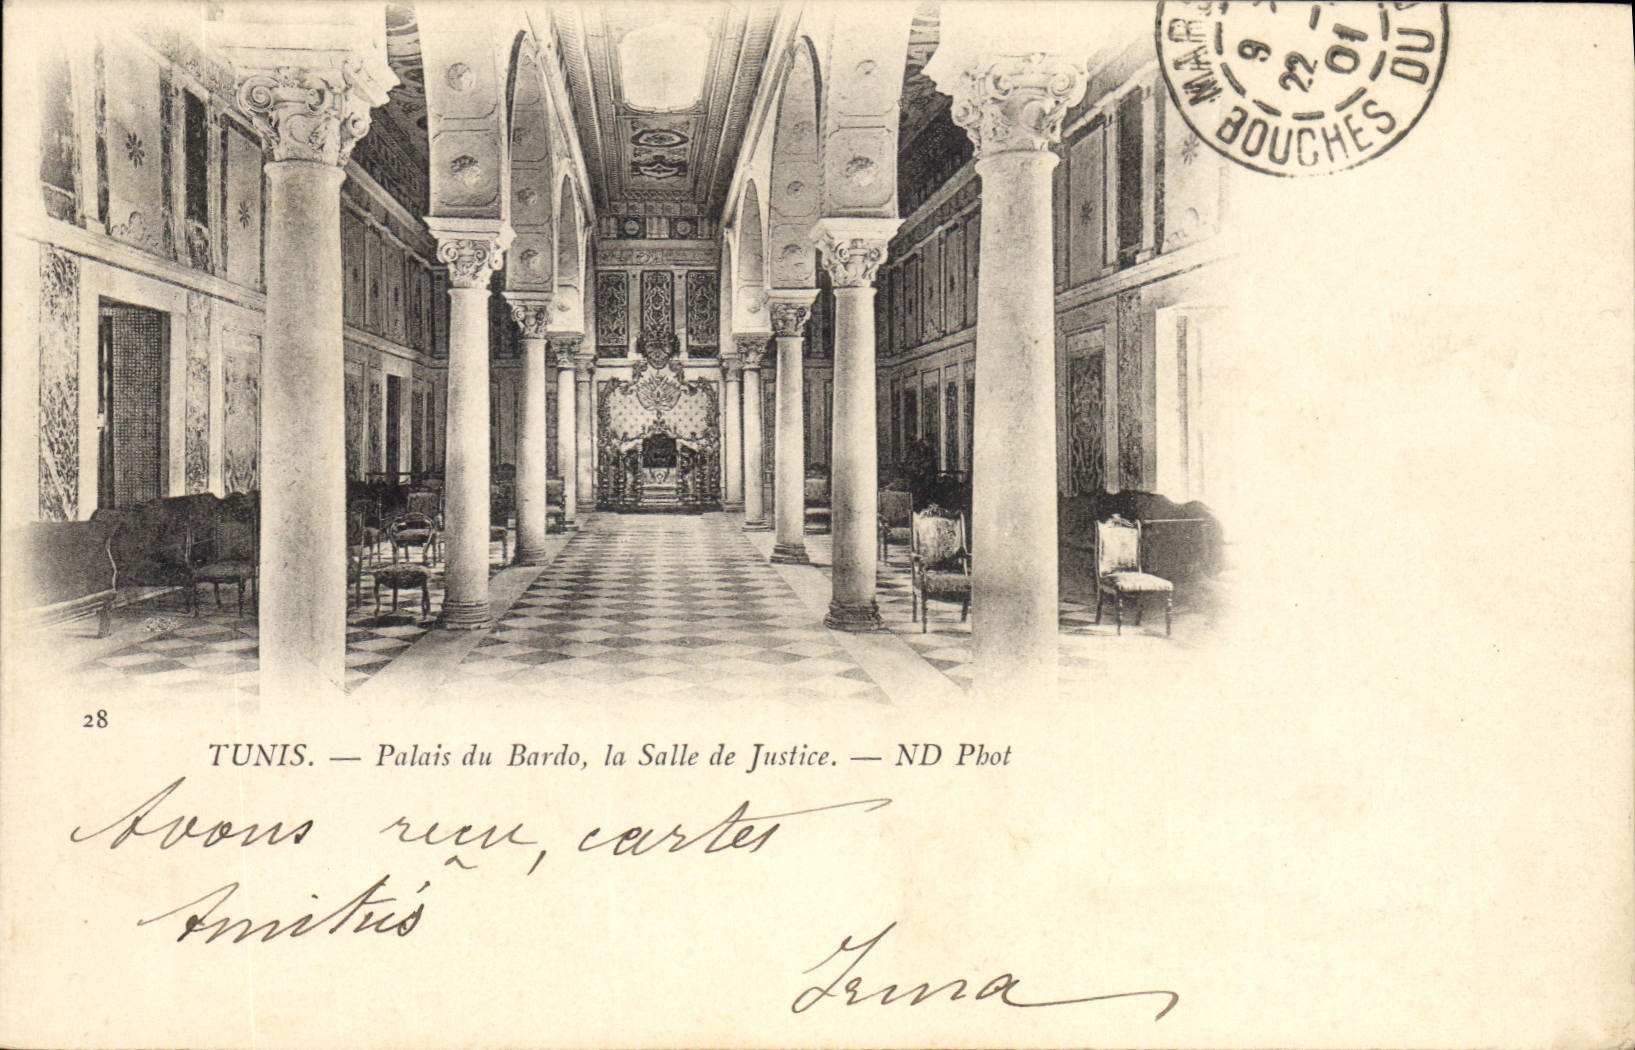 MAR
BOUCHES DU
9
22
01
28
TUNIS. — Palais du Bardo, la Salle de Justice. — ND Phot
Avons reçu, cartes
Amitiés
Irma